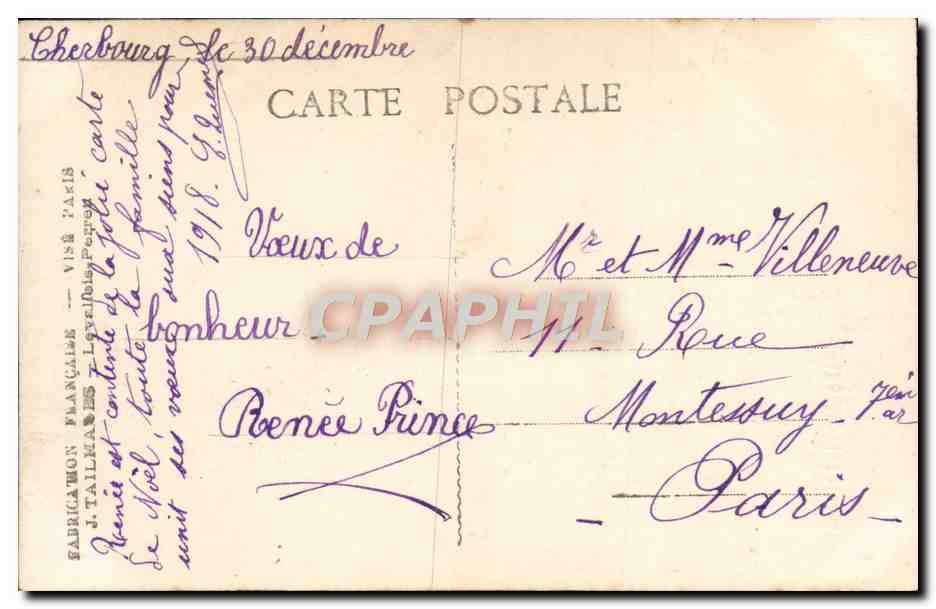 Cherbourg, le 30 décembre
CARTE POSTALE
Vœux de
bonheur.
Renée Prince
Mr et Mme Villeneuve
11 - Rue
Montessuy - 7em
ar
- Paris -
Renée est contente de la jolie carte
de Noël, toute la famille
unit ses vœux aux siens pour
1918.
FABRICATION FRANÇAISE — VISÉ PARIS
J. TAILMADES - Levallois-Perret
CPAPHIL